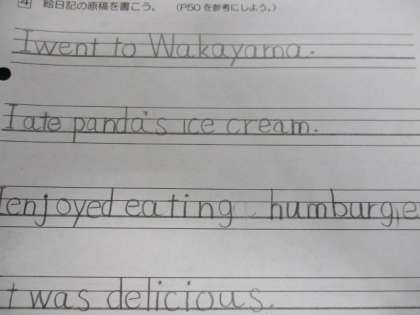 4 絵日記の原稿を書こう。 (P50を参考にしよう。)
I went to Wakayama.
I ate panda's ice cream.
I enjoyed eating humburge
t was delicious.